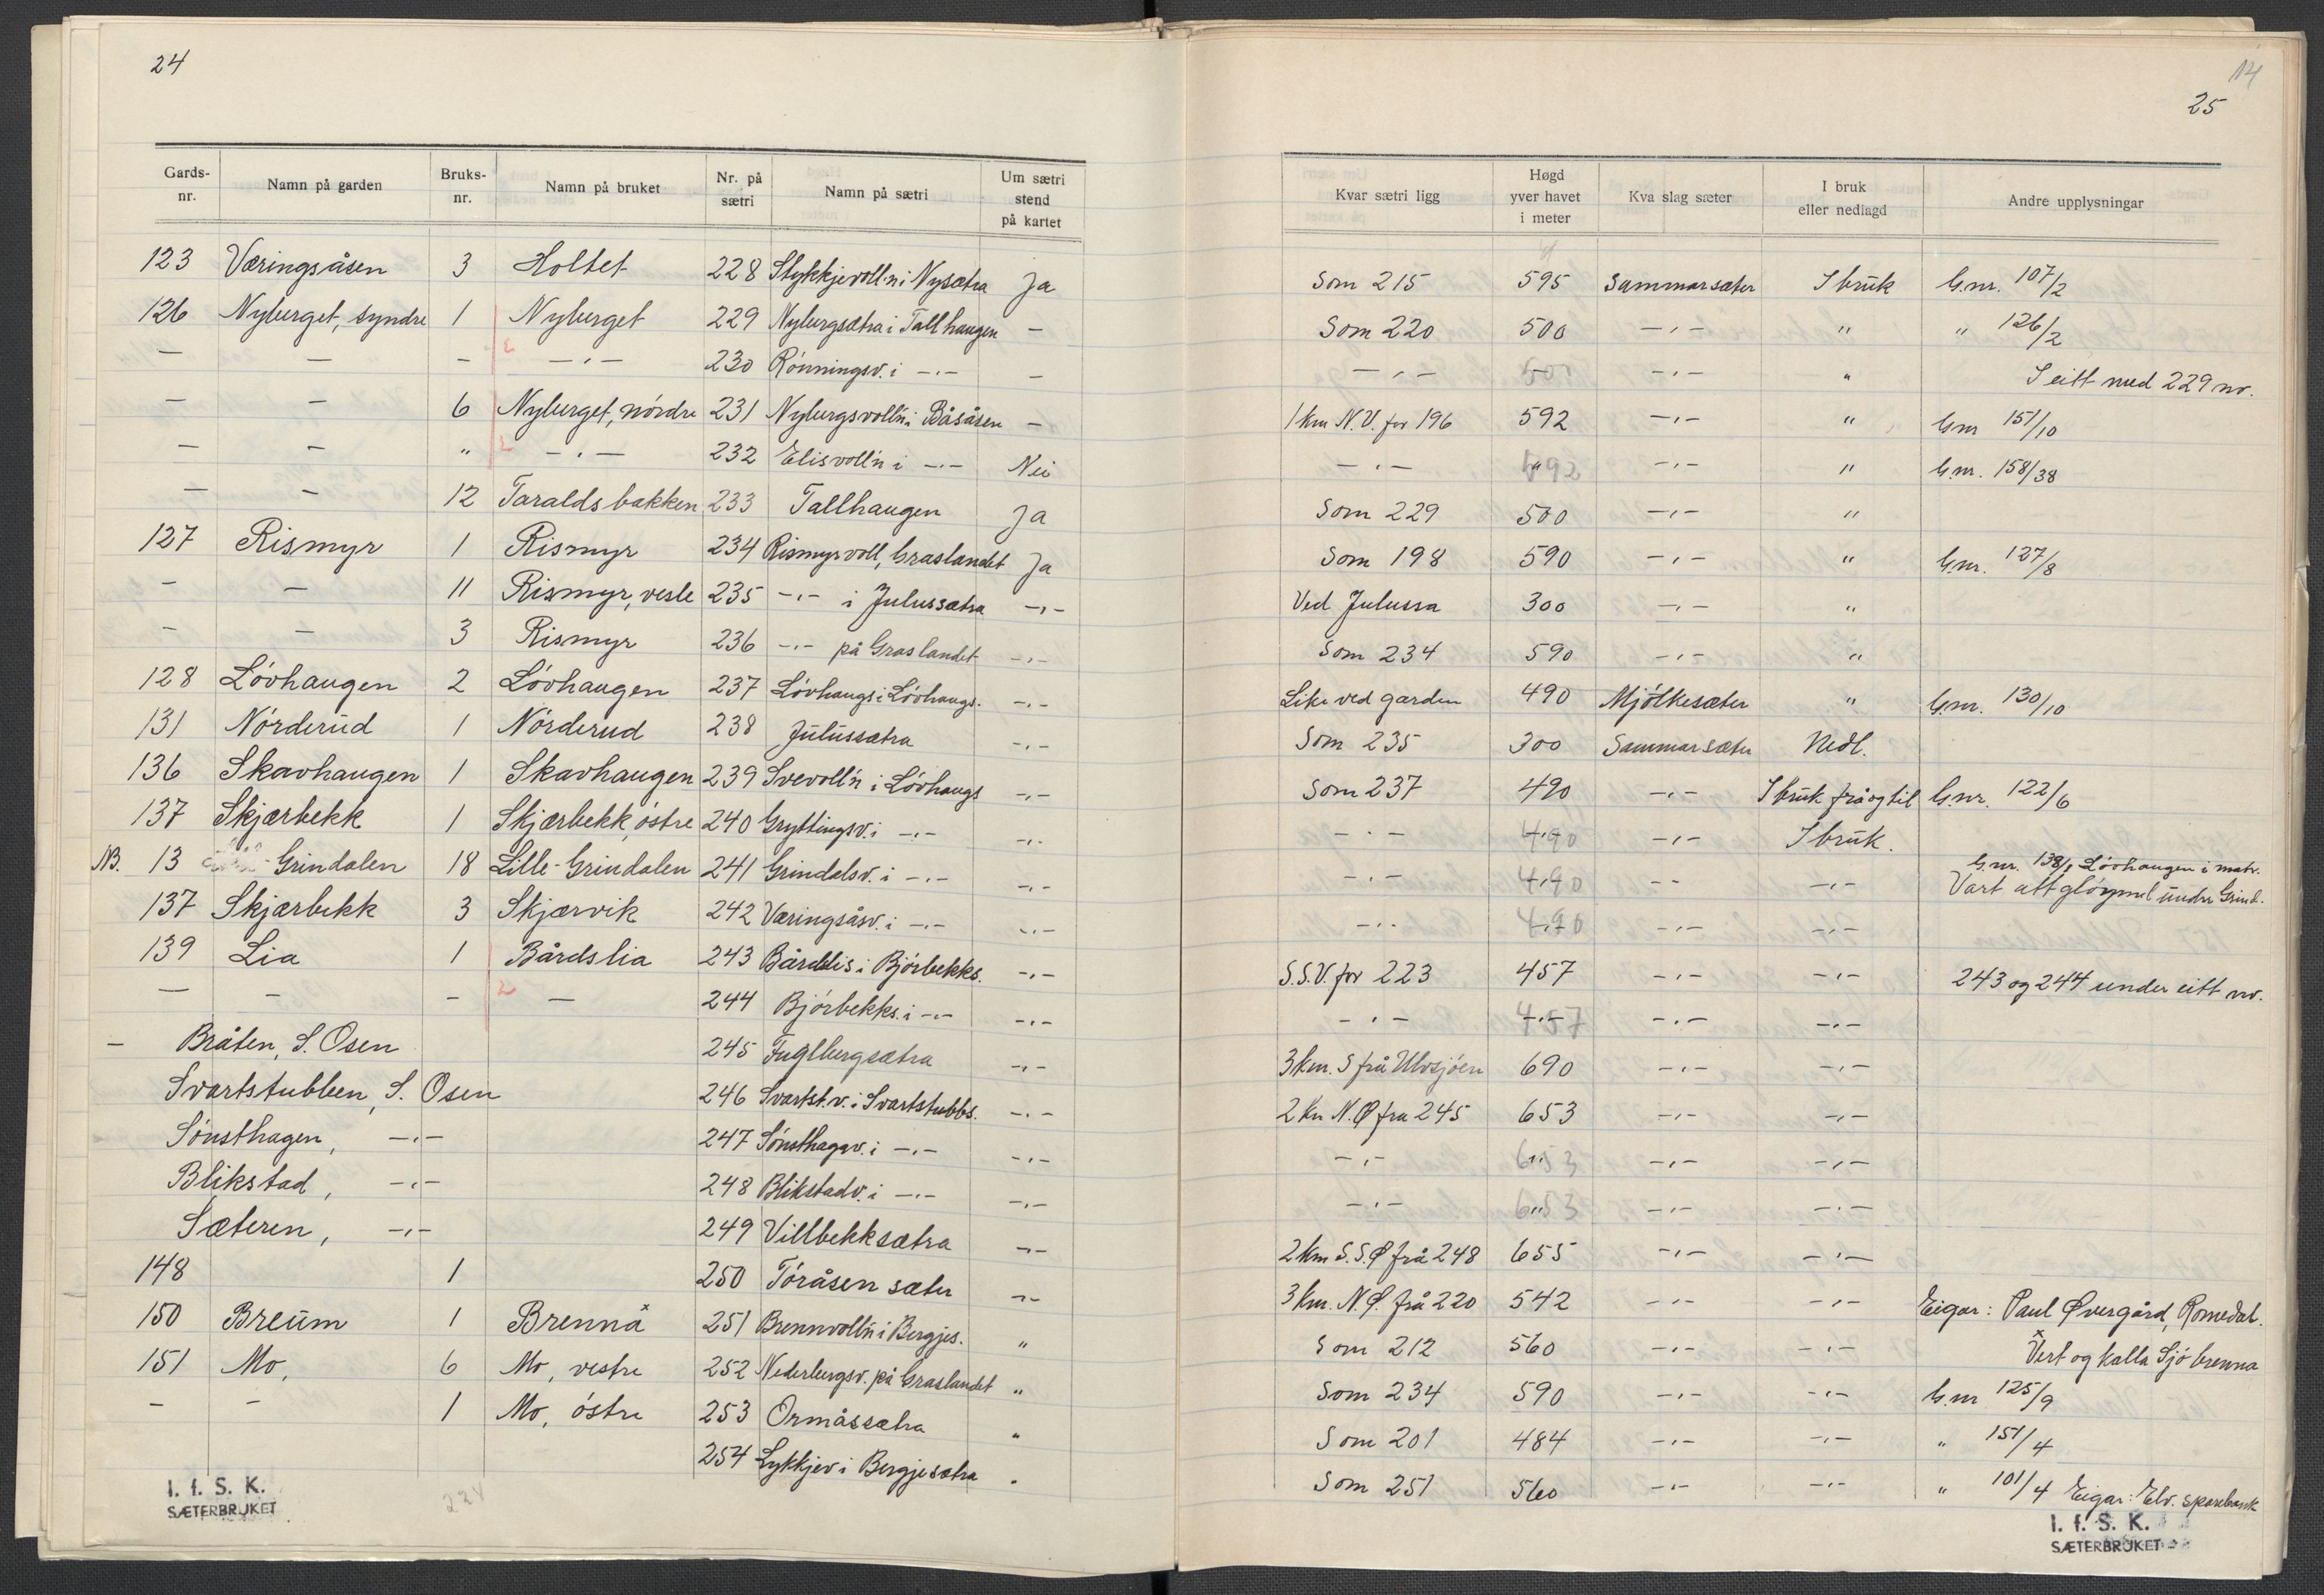 24
Gards-nr. | Namn på garden | Bruks-nr. | Namn på bruket | Nr. på sætri | Namn på sætri | Um sætri stend på kartet
123 Væringsåsen 3 Holtet 228 Stykkjevoll'n i Nysætra Ja
126 Nyberget, syndre 1 Nyberget 229 Nybergsætra i Tallhaugen –
— — – 2 —·— 230 Rönningsv. i —·— –
— — 6 Nyberget, nördre 231 Nybergsvoll'n i Båsåsen –
— — " 2 —·— 232 Elisvoll'n i —·— Nei
— — 12 Taraldsbakken 233 Tallhaugen Ja
127 Rismyr 1 Rismyr 234 Rismyrvoll, Graslandet Ja
— — 11 Rismyr, vesle 235 —·— i Julussætra —·—
— — 3 Rismyr 236 —·— på Graslandet —·—
128 Lövhaugen 2 Lövhaugen 237 Lövhaugs i Lövhaugs. —·—
131 Nörderud 1 Nörderud 238 Julussætra —·—
136 Skavhaugen 1 Skavhaugen 239 Svevoll'n i Lövhaugs —·—
137 Skjærbekk 1 Skjærbekk, östre 240 Gryttingsv. i —·— —·—
NB. 13 Grindalen 18 Lille-Grindalen 241 Grindalsv. i —·— —·—
137 Skjærbekk 3 Skjærvik 242 Væringsåsv. i —·— —·—
139 Lia 1 Bårdslia 243 Bårdslis i Björbekks. —·—
— — – 2 — 244 Björbekks. i —·— —·—
— Bråten, S. Osen 245 Fuglbergsætra —·—
Svartstubben, S. Osen 246 Svartst.v. i Svartstubbs. —·—
Sönsthagen, —·— 247 Sönsthagav. i —·— —·—
Blikstad, —·— 248 Blikstadv. i —·— —·—
Sæteren, —·— 249 Villbekksætra —·—
148 1 250 Töråsen sæter —·—
150 Breum 1 Brenna x 251 Brennvoll'n i Bergjes. "
151 Mo, 6 Mo, vestre 252 Nederbergsv. på Graslandet "
— — 1 Mo, östre 253 Ormåssætra "
254 Lykkjev i Bergjesætra "
I. f. S. K.
SÆTERBRUKET
224
14
25
Kvar sætri ligg | Høgd yver havet i meter | Kva slag sæter | I bruk eller nedlagd | Andre upplysningar
Som 215 595 Summarsæter I bruk G.nr. 107/2
Som 220 500 —·— " " 126/2
—·— 500 —·— " I eitt med 229 nr.
1 km N.V. for 196 592 —·— " G.nr 151/10
—·— 592 —·— " G.nr. 158/38
Som 229 500 —·— "
Som 198 590 —·— " G.nr. 127/8
Ved Julussa 300 —·— "
Som 234 590 —·— "
Like ved garden 490 Mjölkesæter " G.nr. 130/10
Som 235 300 Sammarsæter Nedl.
Som 237 490 —·— I bruk frå og til G.nr. 122/6
—·— 490 —·— I bruk.
—·— 490 — — —·— G.nr. 138/1 Lövhaugen i matr. Vart attgløymd under Grind.
—·— 490 —·— —·—
S.S.V. for 223 457 —·— —·— 243 og 244 under eitt nr.
—·— 457 —·— —·—
3 km. S frå Ulvsjöen 690 —·— —·—
2 km N.Ø fra 245 653 —·— —·—
—·— 653 —·— —·—
—·— 653 —·— —·—
2 km S.S.Ø frå 248 655 —·— —·—
3 km. N.Ø. frå 220 542 —·— —·— Eigar: Paul Øvergård, Romedal.
Som 212 560 —·— —·— x Vert og kalla Sjöbrenna
Som 234 590 —·— —·— G.nr 125/9
Som 201 484 —·— —·— " 151/4
Som 251 560 —·— —·— " 101/4 Eigar: Elv. sparebank
I. f. S. K.
SÆTERBRUKET